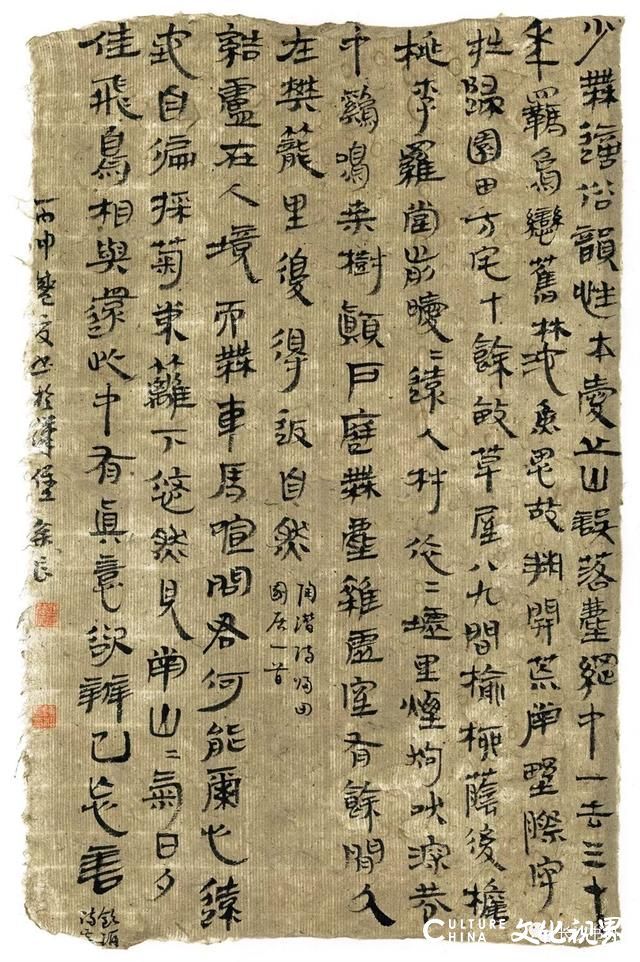 少無適俗韻性本愛丘山誤落塵網中一去三十
年羈鳥戀舊林池魚思故淵開荒南野際守
拙歸園田方宅十餘畝草屋八九間榆柳蔭後檐
桃李羅堂前曖〻遠人村依〻墟里煙狗吠深巷
中鷄鳴桑樹顛戶庭無塵雜虛室有餘閒久
在樊籠里復得返自然
陶潛詩歸田
園居一首
結廬在人境而無車馬喧問君何能爾心遠
地自偏採菊東籬下悠然見南山〻氣日夕
佳飛鳥相與還此中有真意欲辨已忘言
飲酒
丙申於漢堡
CULTURE CHINA 文化视界